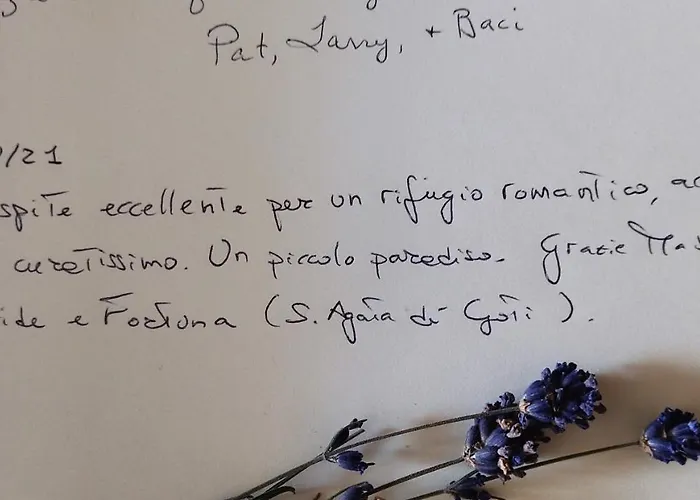 Pat, Larry, + Baci
/21
spite eccellente per un rifugio romantico, ac
curatissimo. Un piccolo paradiso. Grazie Mas
ide e Fortuna (S. Agata dè Goti).